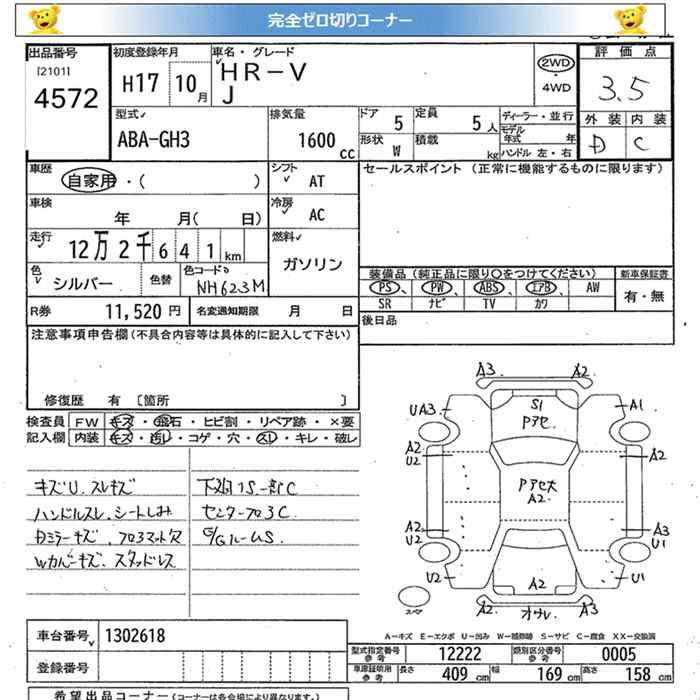 完全ゼロ切りコーナー
出品番号 初度登録年月 車名・グレード 評価点
[2101] H17 10月 HR-V 2WD・4WD 3.5
4572 J
型式 排気量 ドア 5 定員 5人 ディーラー・並行 外装 内装
ABA-GH3 1600cc 形状 W 積載 kg モデル年式 年 D C
ハンドル 左・右
車歴 シフト セールスポイント (正常に機能するものに限ります)
自家用・( ) AT
車検 冷房
年 月( 日) AC
走行 燃料
12万2千641km ガソリン
色 色替 色コード 装備品 (純正品に限り〇をつけてください) 新車保証書
シルバー NH623M PS、 PW、 ABS、 エアB、 AW 有・無
SR ナビ TV カワ
R券 11,520円 名変通知期限 月 日 後日品
注意事項申告欄(不具合内容等は具体的に記入して下さい)
修復歴 有 [箇所 ]
検査員 FW キズ・飛石・ヒビ割・リペア跡・×要
記入欄 内装 キズ・汚レ・コゲ・穴・スレ・キレ・破レ
キズU.スレキズ 下廻りS一部C
ハンドルスレ、シートしみ センターフロ3C
Wカバーキズ、スタッドレス
A3 A2
UA3 S1 A1
Pアセ
A2 U2 A2
Pアセ大
A2
A2 U2 A3 U1
U2 A2 U1
A2 A3
スペア
A-キズ E-エクボ U-凹み W-補修跡 S-サビ C-腐食 XX-交換済
車台番号 1302618 型式指定番号 参考 12222 類別区分番号 参考 0005
登録番号 車庫証明用 参考 長さ 409cm 幅 169cm 高さ 158cm
希望出品コーナー (コーナーは各会場により異なります。)